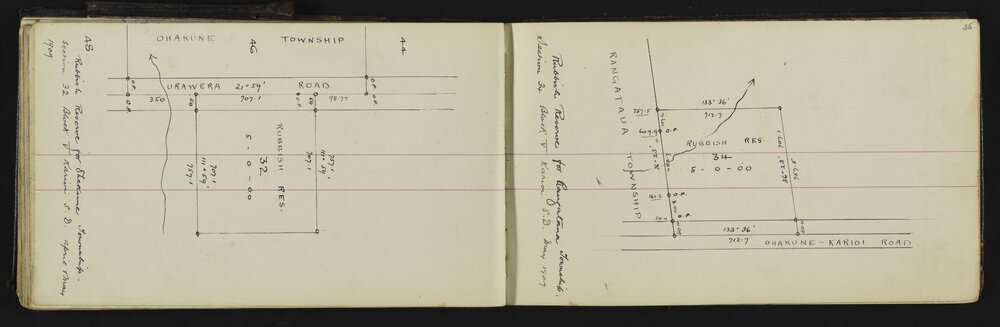 48
Rubbish Reserve for Ohakune Township -
Section 32 Block V Karioi S.D. April & May
1909
OHAKUNE TOWNSHIP
46
44
O.P.
O.P.
O.P.
O.P.
URAWERA 21° 59' ROAD
350
707.1
O.P.
98.77
50
50
757.1
111° 59'
707.1
RUBBISH RES.
32
5 - 0 - 00
707.1
757.1
111° 59'
36
Rubbish Reserve for Rangataua Township.
Section 34 Block V Karioi S.D. May 1909
RANGATAUA TOWNSHIP
133° 36'
712.7
757.5
O.P.
RUBBISH RES.
34
5 - 0 - 00
O.P.
O.P.
133° 36'
712.7
OHAKUNE - KARIOI ROAD